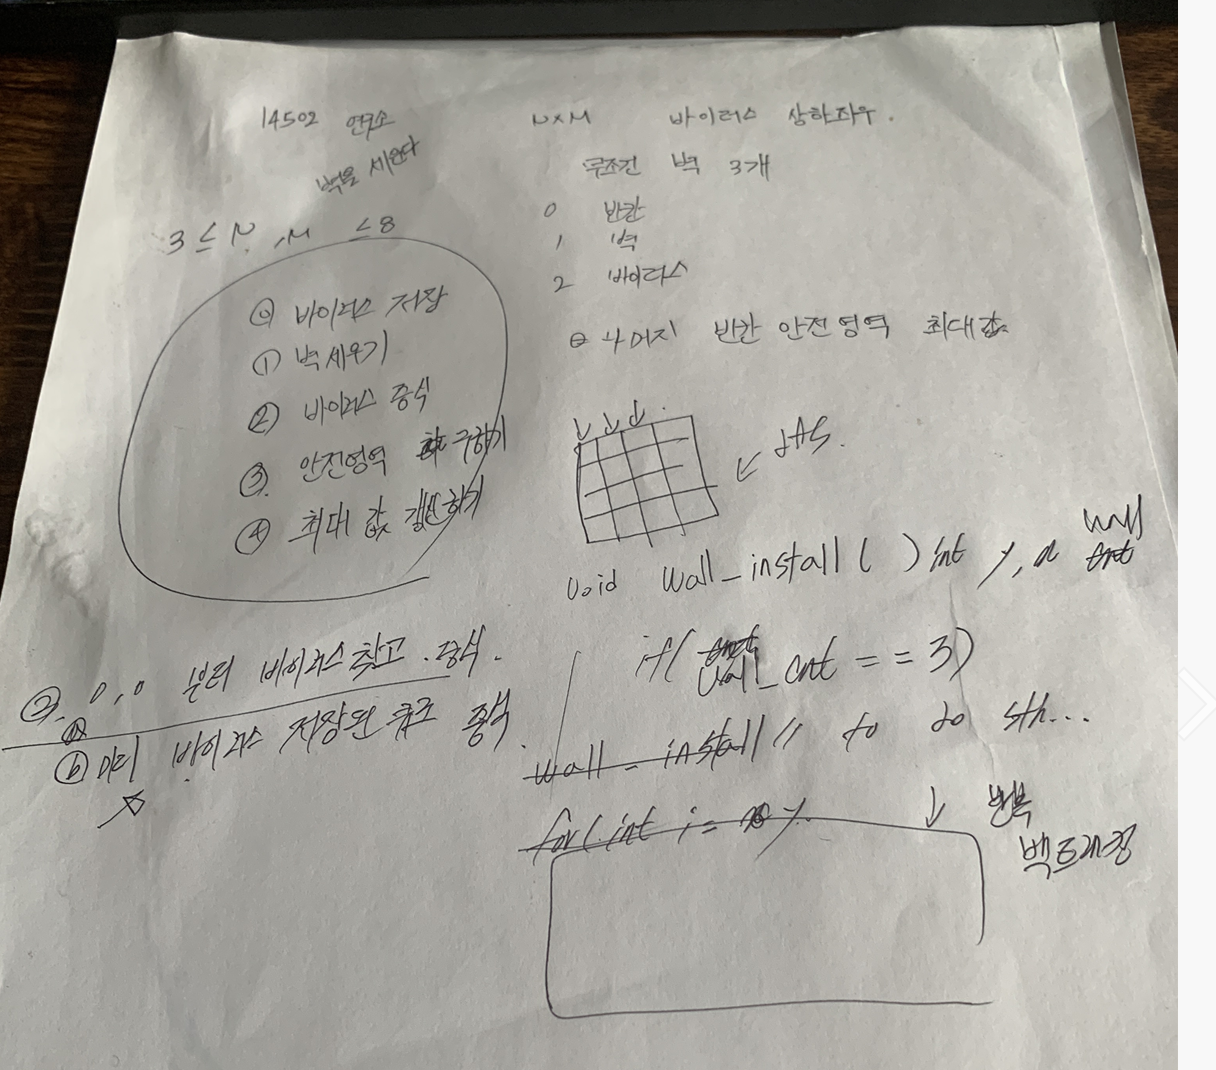 14502 연구소
벽을 세운다
3 ≤ N, M ≤ 8
⓪ 바이러스 저장
① 벽 세우기
② 바이러스 증식
③ 안전영역 구하기
④ 최대 값 갱신하기
②. 0,0 부터 바이러스 찾고. 증식.
ⓐ
ⓑ 미리 바이러스 저장된 큐로 증식.
N×M 바이러스 상하좌우.
무조건 벽 3개
0 빈칸
1 벽
2 바이러스
⊖ 나머지 빈칸 안전영역 최대값
dfs.
void wall_install ( ) int y, x wall cnt
if( wall_cnt == 3)
wall_install // to do sth...
for( int i = y.
반복
백트래킹